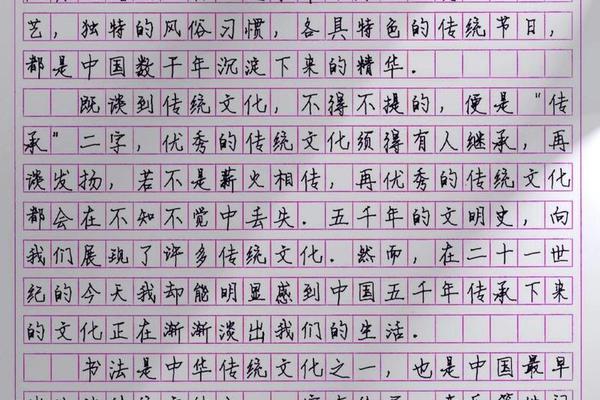 艺，独特的风俗习惯，各具特色的传统节日，
都是中国数千年沉淀下来的精华.
既谈到传统文化，不得不提的，便是“传
承”二字，优秀的传统文化须得有人继承，再
谈发扬，若不是薪火相传，再优秀的传统文化
都会在不知不觉中丢失.五千年的文明史，向
我们展现了许多传统文化.然而，在二十一世
纪的今天我却能明显感到中国五千年传承下来
的文化正在渐渐淡出我们的生活.
书法是中华传统文化之一，也是中国最早